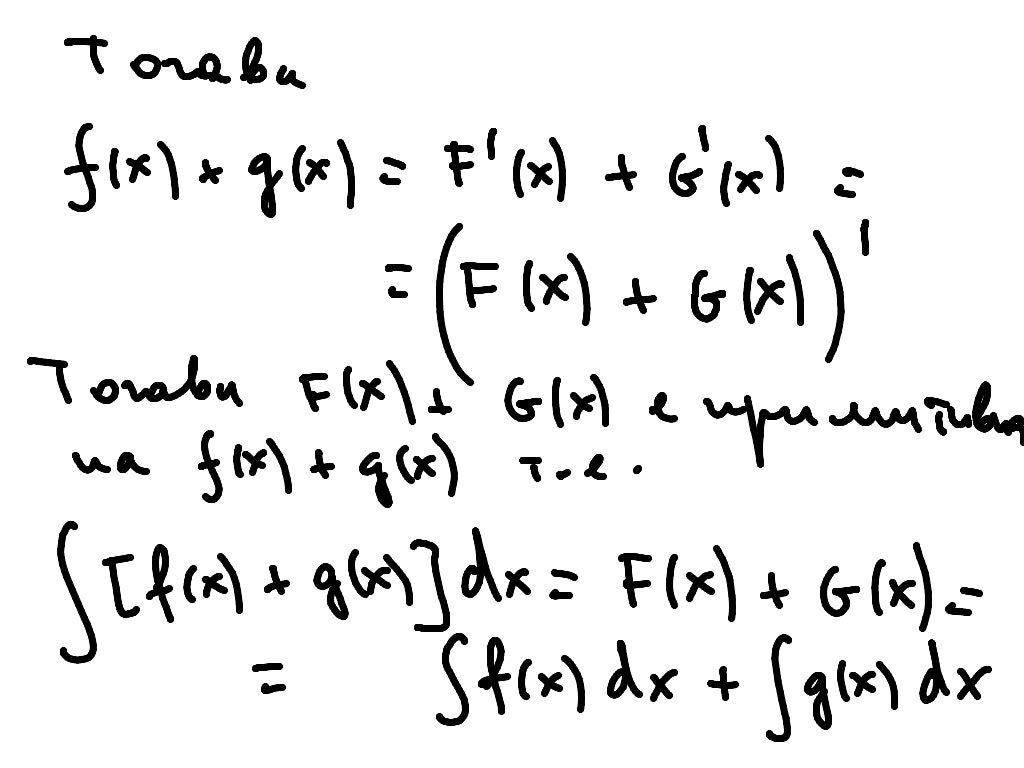 Тогави
f(x) + g(x) = F'(x) + G'(x) =
= (F(x) + G(x))'
Тогави F(x) + G(x) е примитивна
на f(x) + g(x) т.е.
∫[f(x) + g(x)]dx = F(x) + G(x) =
= ∫f(x) dx + ∫g(x) dx